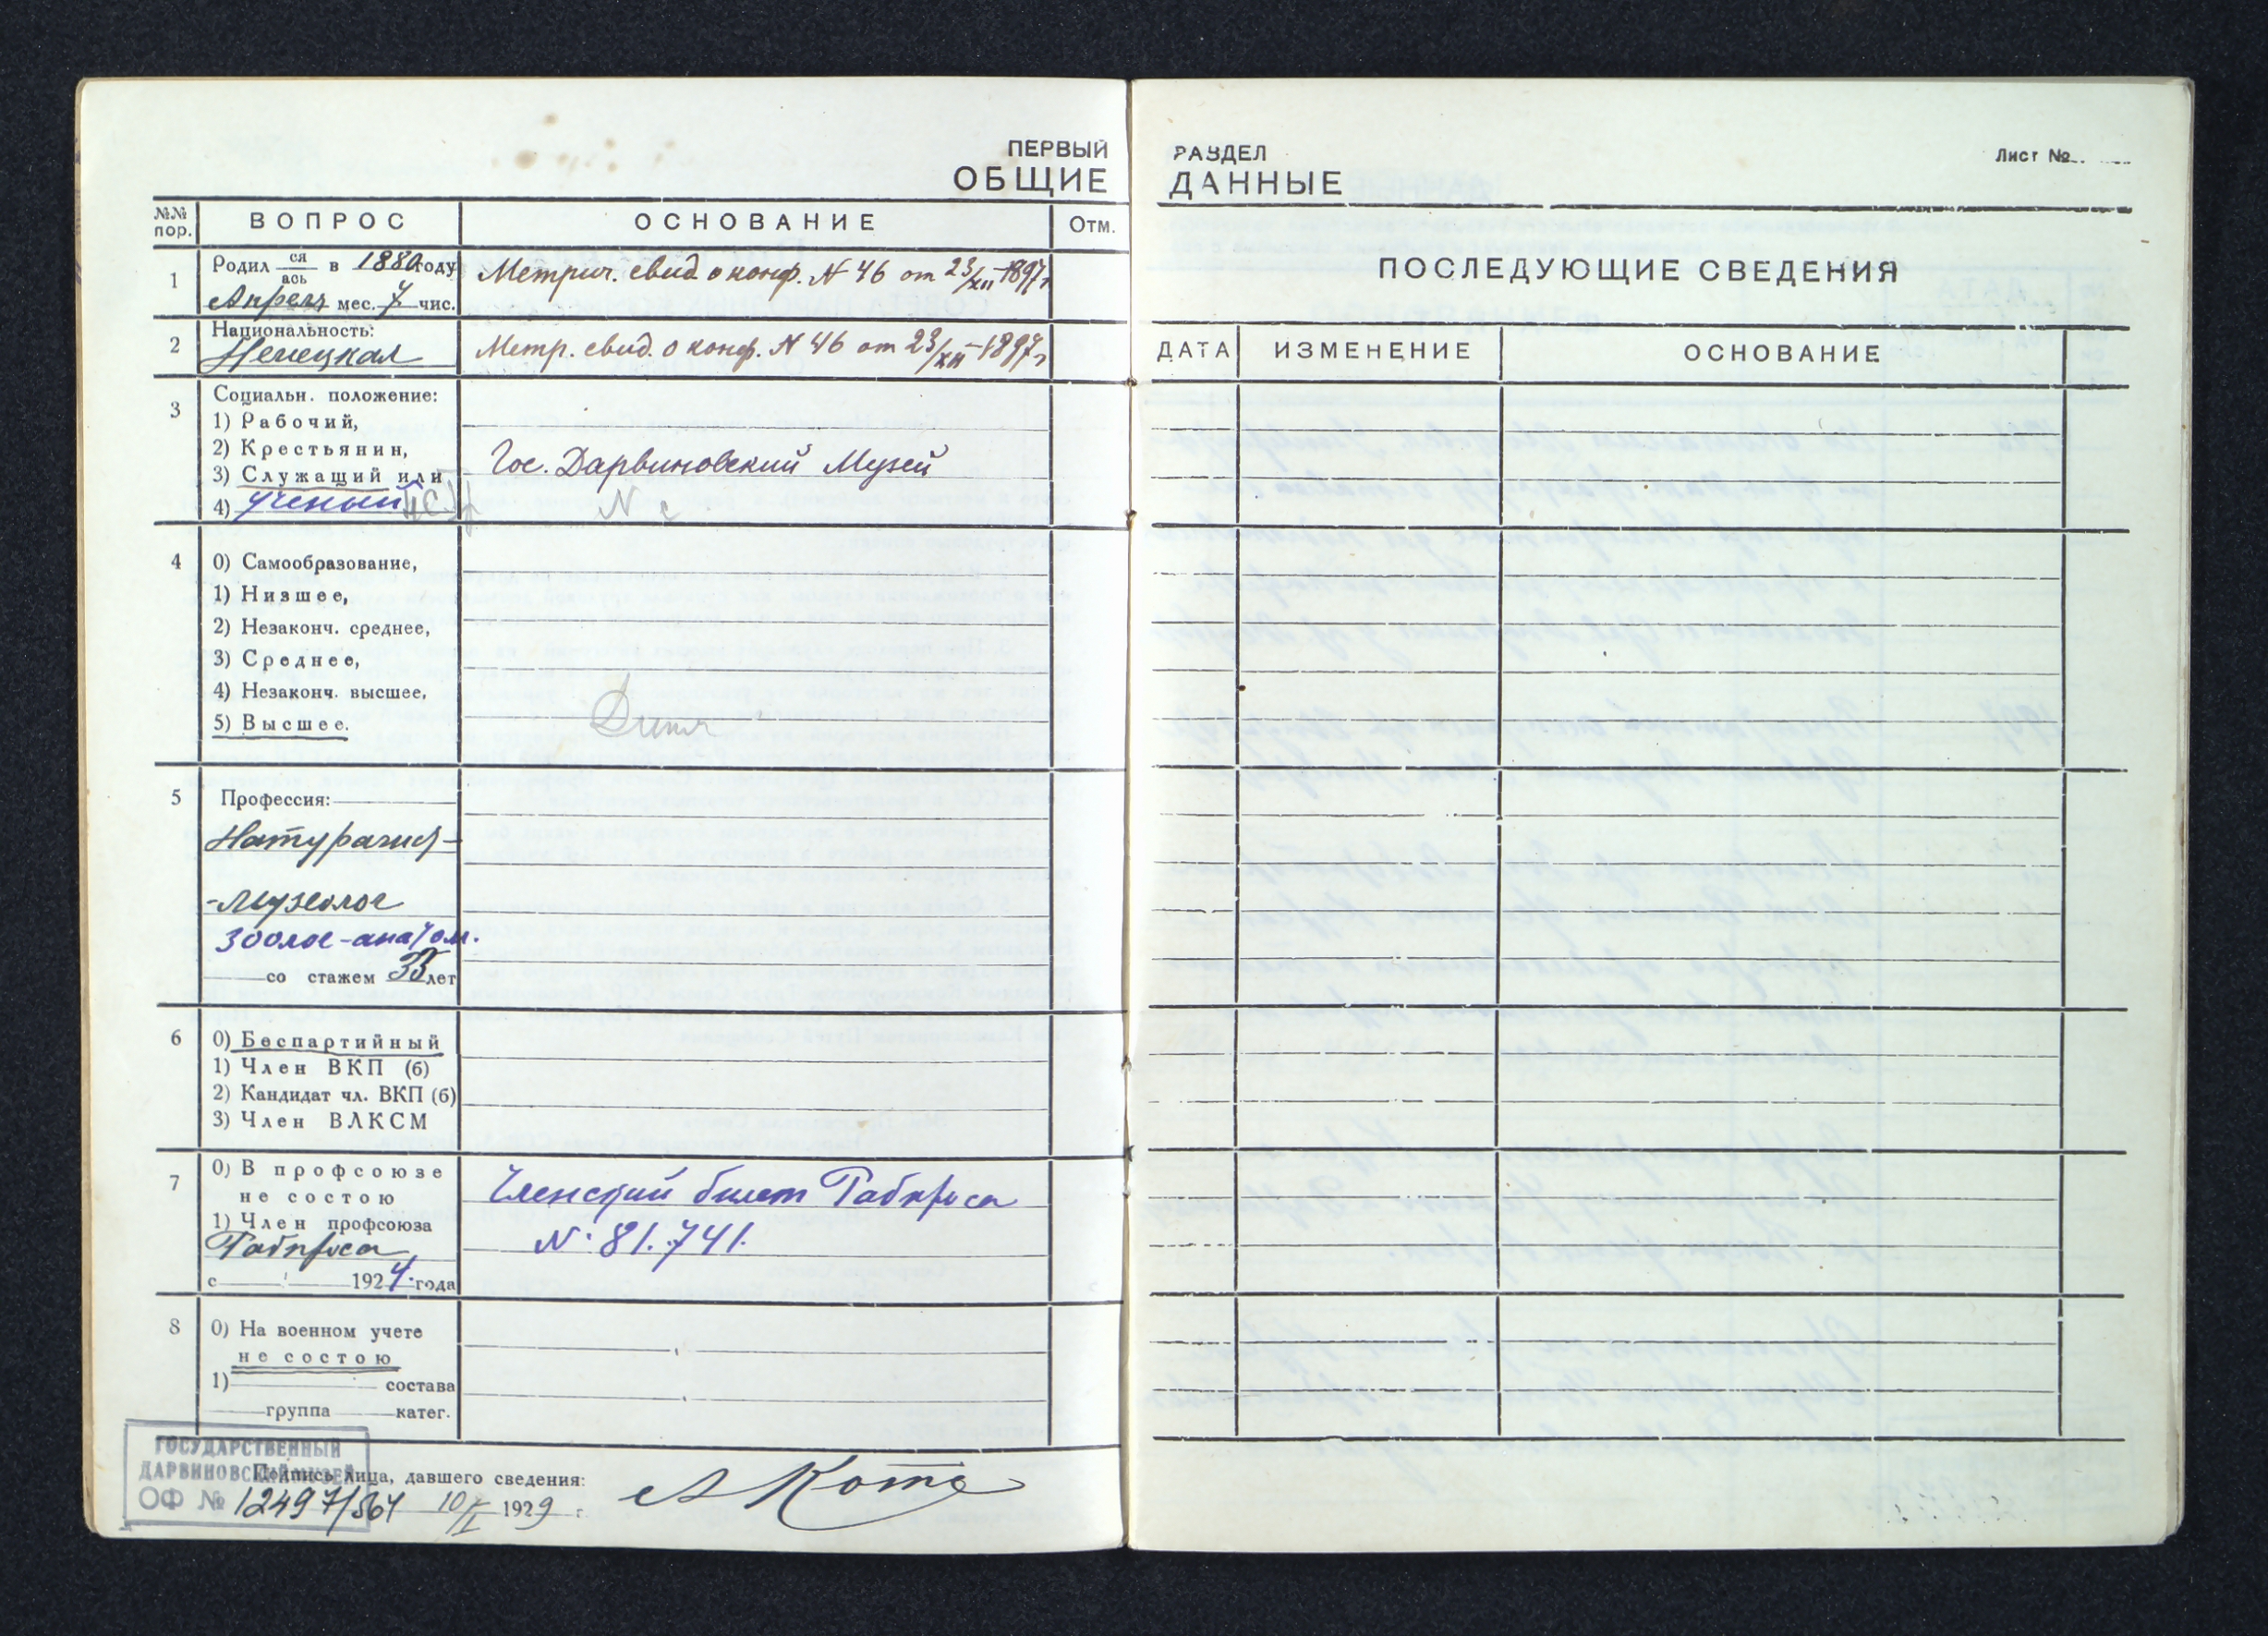 ПЕРВЫЙ
ОБЩИЕ
№№ пор.
ВОПРОС
ОСНОВАНИЕ
Отм.
1
Родил ся/ась в 1880 году
Апреля мес. 7 чис.
Метрич. свид. о конф. N 46 от 23/XII-1897 г
2
Национальность:
Немецкая
Метр. свид. о конф. N 46 от 23/XII-1897 г
3
Социальн. положение:
1) Рабочий,
2) Крестьянин,
3) Служащий или
4) ученый
Гос. Дарвиновский Музей
4
0) Самообразование,
1) Низшее,
2) Незаконч. среднее,
3) Среднее,
4) Незаконч. высшее,
5) Высшее.
5
Профессия:
Натуралист-
-музеолог
зоолог-анатом.
со стажем 33 лет
6
0) Беспартийный
1) Член ВКП (б)
2) Кандидат чл. ВКП (б)
3) Член ВЛКСМ
7
0) В профсоюзе
не состою
1) Член профсоюза
Рабпроса
с 1924 года
Членский билет Рабпроса
N: 81.741.
8
0) На военном учете
не состою
1) состава
группа катег.
ГОСУДАРСТВЕННЫЙ
ДАРВИНОВСКИЙ МУЗЕЙ
ОФ № 12497/564
Подпись лица, давшего сведения:
10/I 1929 г.
А Котс
РАЗДЕЛ
ДАННЫЕ
Лист №
ПОСЛЕДУЮЩИЕ СВЕДЕНИЯ
ДАТА
ИЗМЕНЕНИЕ
ОСНОВАНИЕ